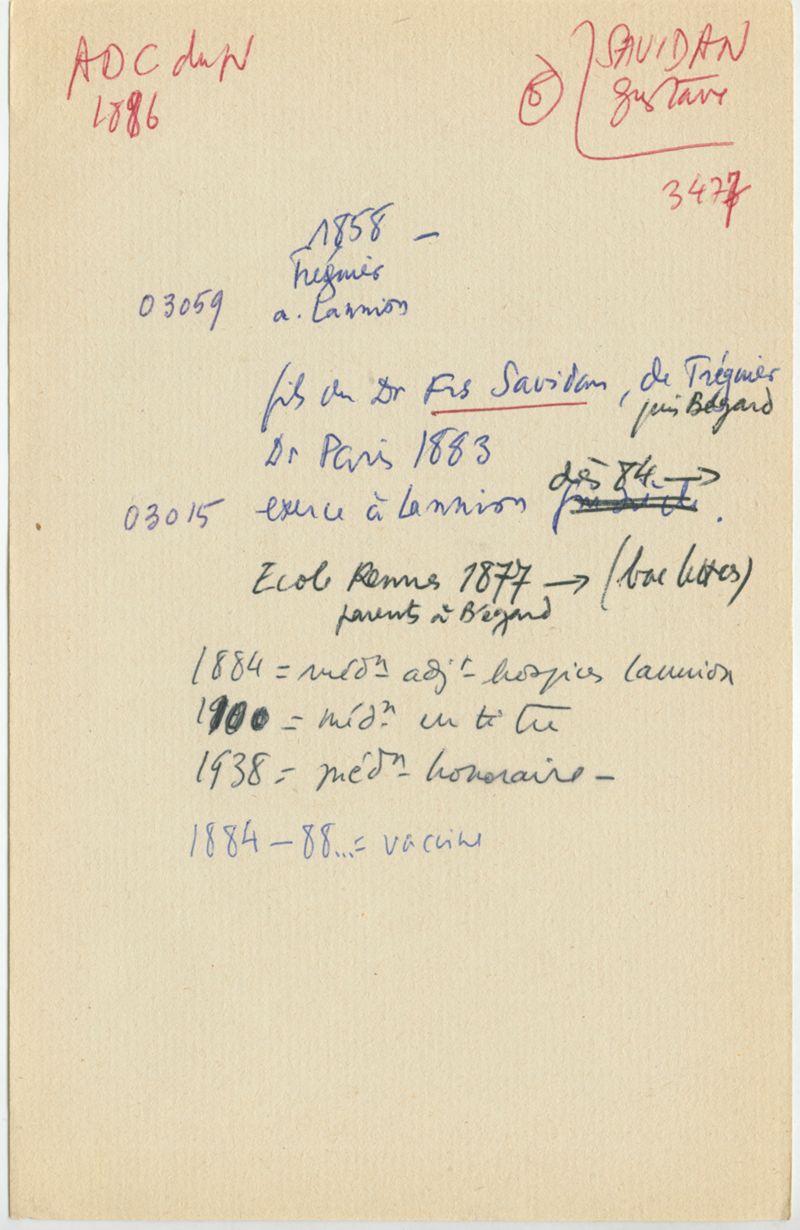 ADC du N
1886
6
SAVIDAN
Gustave
3477
1858 -
Tréguier
03059 a. Lannion
fils du Dr Frs Savidan, de Tréguier
puis Bégard
Dr Paris 1883
dès 84 →
03015 exerce à Lannion
Ecole Rennes 1877 → (bac lettres)
parents à Bégard
1884 = médn adjt hospices Lannion
1900 = médn en titre
1938 = médn honoraire -
1884 - 88...= vaccine